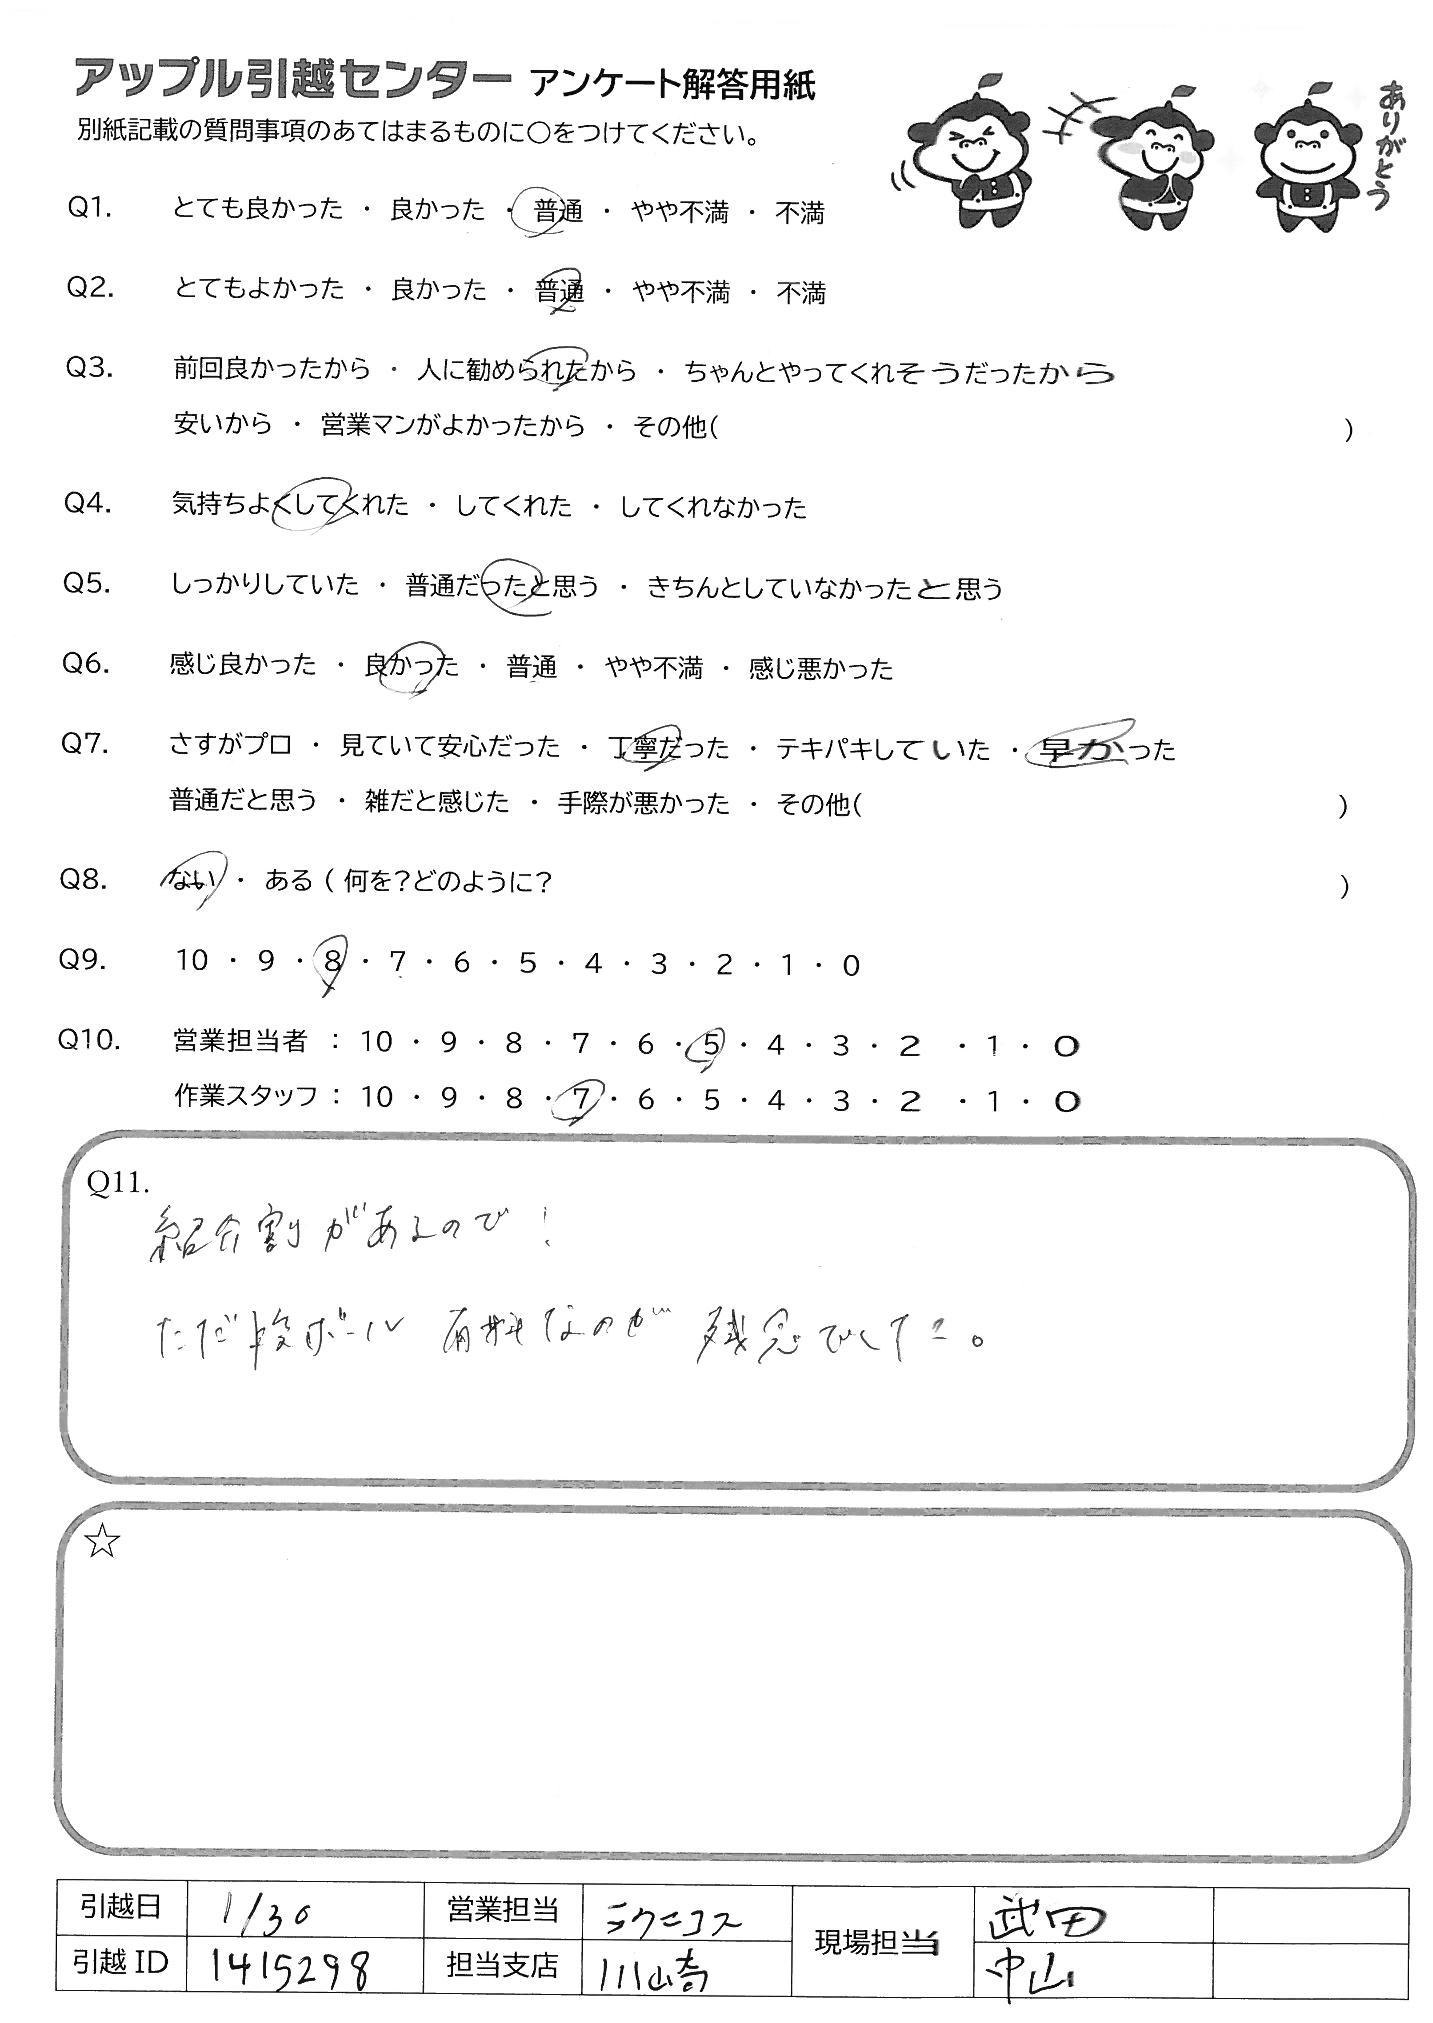 アップル引越センター アンケート解答用紙
別紙記載の質問事項のあてはまるものに〇をつけてください。
ありがとう
Q1. とても良かった ・ 良かった ・ 普通 ・ やや不満 ・ 不満
Q2. とてもよかった ・ 良かった ・ 普通 ・ やや不満 ・ 不満
Q3. 前回良かったから ・ 人に勧められたから ・ ちゃんとやってくれそうだったから
安いから ・ 営業マンがよかったから ・ その他( )
Q4. 気持ちよくしてくれた ・ してくれた ・ してくれなかった
Q5. しっかりしていた ・ 普通だったと思う ・ きちんとしていなかったと思う
Q6. 感じ良かった ・ 良かった ・ 普通 ・ やや不満 ・ 感じ悪かった
Q7. さすがプロ ・ 見ていて安心だった ・ 丁寧だった ・ テキパキしていた ・ 早かった
普通だと思う ・ 雑だと感じた ・ 手際が悪かった ・ その他( )
Q8. ない ・ ある ( 何を?どのように? )
Q9. 10 ・ 9 ・ 8 ・ 7 ・ 6 ・ 5 ・ 4 ・ 3 ・ 2 ・ 1 ・ 0
Q10. 営業担当者 : 10 ・ 9 ・ 8 ・ 7 ・ 6 ・ 5 ・ 4 ・ 3 ・ 2 ・ 1 ・ 0
作業スタッフ : 10 ・ 9 ・ 8 ・ 7 ・ 6 ・ 5 ・ 4 ・ 3 ・ 2 ・ 1 ・ 0
Q11.
紹介割があるので!
ただ段ボール 有料なのが 残念でした。
☆
引越日 1/30 営業担当 ラクニコス 現場担当 武田
引越 ID 1415298 担当支店 川崎 中山